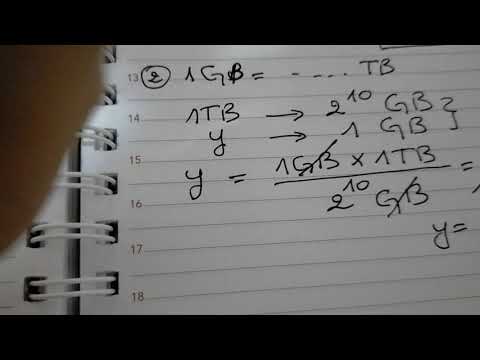 13 ② 1GB = - .... TB
14 1TB → 2^10 GB }
y → 1 GB }
15 y = 1GB × 1TB / 2^10 GB =
16
y =
17
18